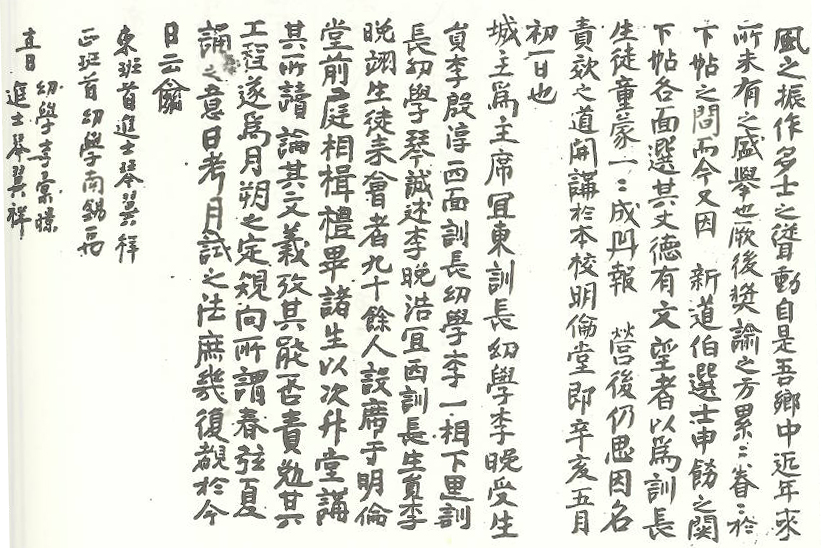 風之振作多士之聳動自是吾鄕中近年來
所未有之盛擧也厥後奬諭之方累〻眷〻於
下帖之間而今又因 新道伯選士申飭之關
下帖各面選其丈德有文望者以爲訓長
生徒童蒙一〻成冊報 營後仍思因名
責效之道開講於本校明倫堂卽辛亥五月
初一日也
城主爲主席宜東訓長幼學李晩受生
員李殷淳西面訓長幼學李一相下里訓
長幼學琴誠述李晩浩宜西訓長生員李
晩翊生徒來會者九十餘人設席于明倫
堂前庭相揖禮畢諸生以次升堂講
其所讀論其文義攷其能否責勉其
工程遂爲月朔之定規向所謂春弦夏
誦之意日考月試之法庶幾復覩於今
日云爾
東班首進士琴翼祥
西班首幼學南錫
直日 幼學李彙
進士琴翼祥